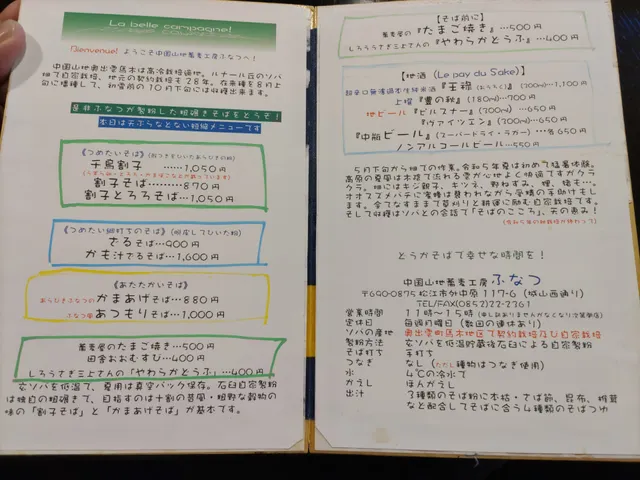 La belle campagne!
Bienvenue! ようこそ中国山地蕎麦工房ふなつへ!
中国山地奥出雲馬木は高冷栽培適地。ルナール丘のソバ
畑で自家栽培、地元の契約栽培も28年。在来種を8月上
旬に播種して、初雪前の10月下旬には収穫出来ます。
是非ふなつが製粉した粗碾きそばをどうぞ!
本日は天ぷらなどない短縮メニューです
《つめたいそば》
千鳥割子 ……1,050円
割子そば………870円
割子とろろそば…1,050円
《つめたい細打ちのそば》
ざるそば…900円
かも汁ざるそば…1,600円
《あたたかいそば》
あらびきふなつの かまあげそば…880円
ふなつ風 あつもりそば…1,000円
蕎麦屋のたまご焼き…500円
田舎おおむすび…400円
しろうさぎ三上さんの「やわらかとうふ」…400円
玄ソバを低温で、夏用は真空パック保存。石臼自家製粉
は独自の粗碾きで、目指すのは十割の昔風・粗野な穀物の
味の「割子そば」と「かまあげそば」が基本です。
【そば前に】
蕎麦屋の『たまご焼き』…500円
しろうさぎ三上さんの『やわらかとうふ』…400円
【地酒(Le pay du Sake)】
超辛口無濾過本生純米酒『王祿(おうろく)』(300ml)…1,100円
上撰『豊の秋』(180ml)…700円
地ビール『ピルスナー』(300ml)…650円
『ヴァイツェン』(300ml)…650円
『中瓶ビール』(スーパードライ・ラガー)…650円
ノンアルコールビール…550円
5月下旬から畑での作業。令和5年夏は初めて猛暑体験。
高原の夏風は木陰で流れる雲が心地よく快適ですがクラ
クラ。畑にはキジ親子、キツネ、野ねずみ、狸、猪も…。
オオスズメバチに蜜蜂は襲われながら受粉の手助けもし
ます。全てなすままで草刈りと耕運に励む自家栽培です。
そして収穫はソバとの会話で「そばのこころ」天の恵み!
どうかそばで幸せな時間を!
中国山地蕎麦工房 ふなつ
〒690-0875 松江市外中原117-6(城山西通り)
TEL/FAX(0852)22-2361
営業時間 11時~15時
定休日 毎週月曜日(数回の連休あり)
ソバの産地 奥出雲町馬木地区で契約栽培及び自家栽培
製粉方法 玄ソバを低温貯蔵後石臼による自家製粉
そば打ち 手打ち
つなぎ なし(ただし種物はつなぎ使用)
水 4℃の冷水で
かえし ほんがえし
出汁 3種類のそば粉に本枯・さば節、昆布、椎茸
など配合してそばに合う4種類のそばつゆ